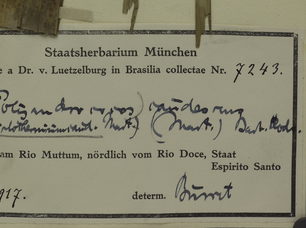 Staatsherbarium München
e a Dr. v. Luetzelburg in Brasilia collectae Nr. 7243.
Polyandrococos caudescens
(Mart.) Barb. Rodr.
am Rio Muttum, nördlich vom Rio Doce, Staat
Espirito Santo
917. determ. Burret